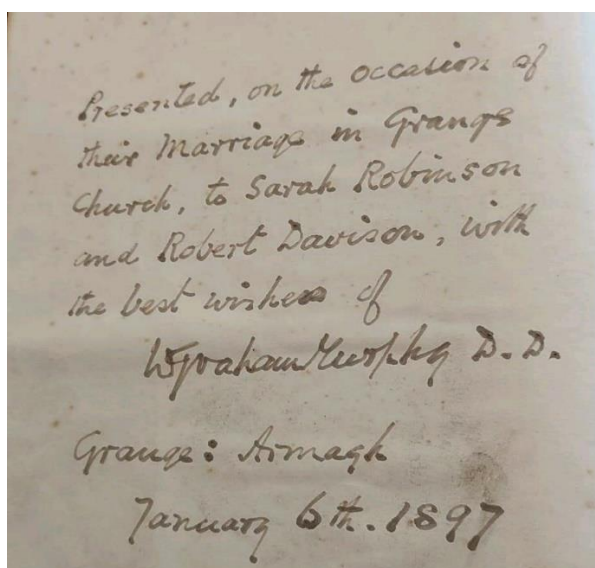 Presented, on the occasion of
their Marriage in Grange
Church, to Sarah Robinson
and Robert Davison, with
the best wishes of
W Graham Murphy D.D.
Grange: Armagh
January 6th. 1897